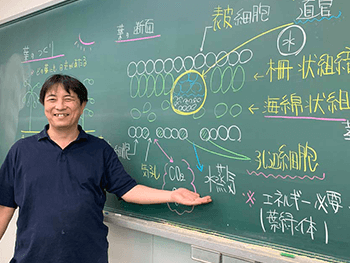 葉の断面
表皮細胞
道管
水
柵状組織
海綿状組織
孔辺細胞
気孔
CO₂
水蒸気
※エネルギー必要
(葉緑体)